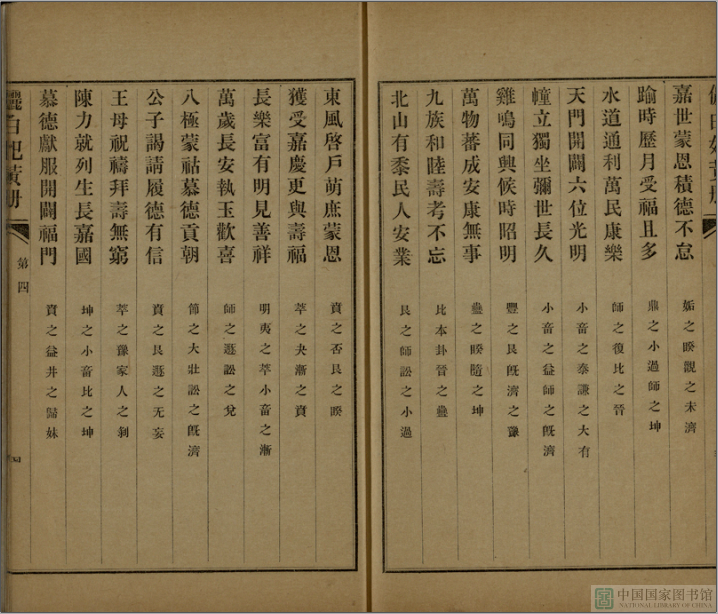 嘉世蒙恩積德不怠 姤之暌觀之未濟
踰時歷月受福且多 鼎之小過師之坤
水道通利萬民康樂 師之復比之晉
天門開闢六位光明 小畜之泰謙之大有
幢立獨坐彌世長久 小畜之益師之旣濟
雞鳴同興候時昭明 豐之艮旣濟之豫
萬物蕃成安康無事 蠱之暌隨之坤
九族和陸壽考不忘 比本卦晉之蠱
北山有黍民人安業 艮之師訟之小過
東風啓戶萌庶蒙恩 賁之否艮之暌
獲受嘉慶更與壽福 萃之夬漸之賁
長樂富有明見善祥 明夷之萃小畜之漸
萬歲長安執玉歡喜 師之遯訟之兌
八極蒙祜慕德貢朝 節之大壯訟之旣濟
公子謁請履德有信 賁之艮遯之无妄
王母祝禱拜壽無窮 萃之豫家人之剝
陳力就列生長嘉國 坤之小畜比之坤
慕德獻服開闢福門 賁之益井之歸妹
儷白妃黃册
第四
中国国家图书馆
NATIONAL LIBRARY OF CHINA